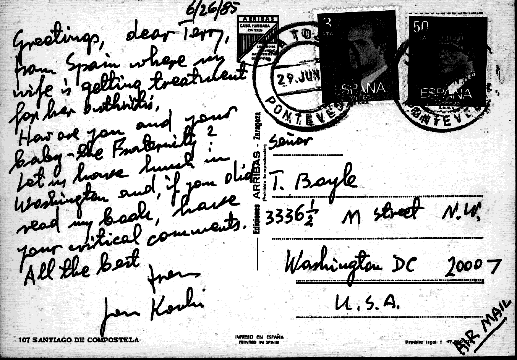 6/26/85
Greetings, dear Terry,
from Spain where my
wife is getting treatment
for her arthritis.
How are you and your
baby - the Fraternity?
Let us have lunch in
Washington and, if you did
read my book, have
your critical comments.
All the best
from
Jan
ARRIBAS
29.JUN
PONTEVE
3
ESPAÑA
50
ESPAÑA
Señor
T. Boyle
3336½ M Street N.W.
Washington DC 20007
U.S.A.
AIR MAIL
Ediciones ARRIBAS - Zaragoza
107 SANTIAGO DE COMPOSTELA
IMPRESO EN ESPAÑA
PRINTED IN SPAIN